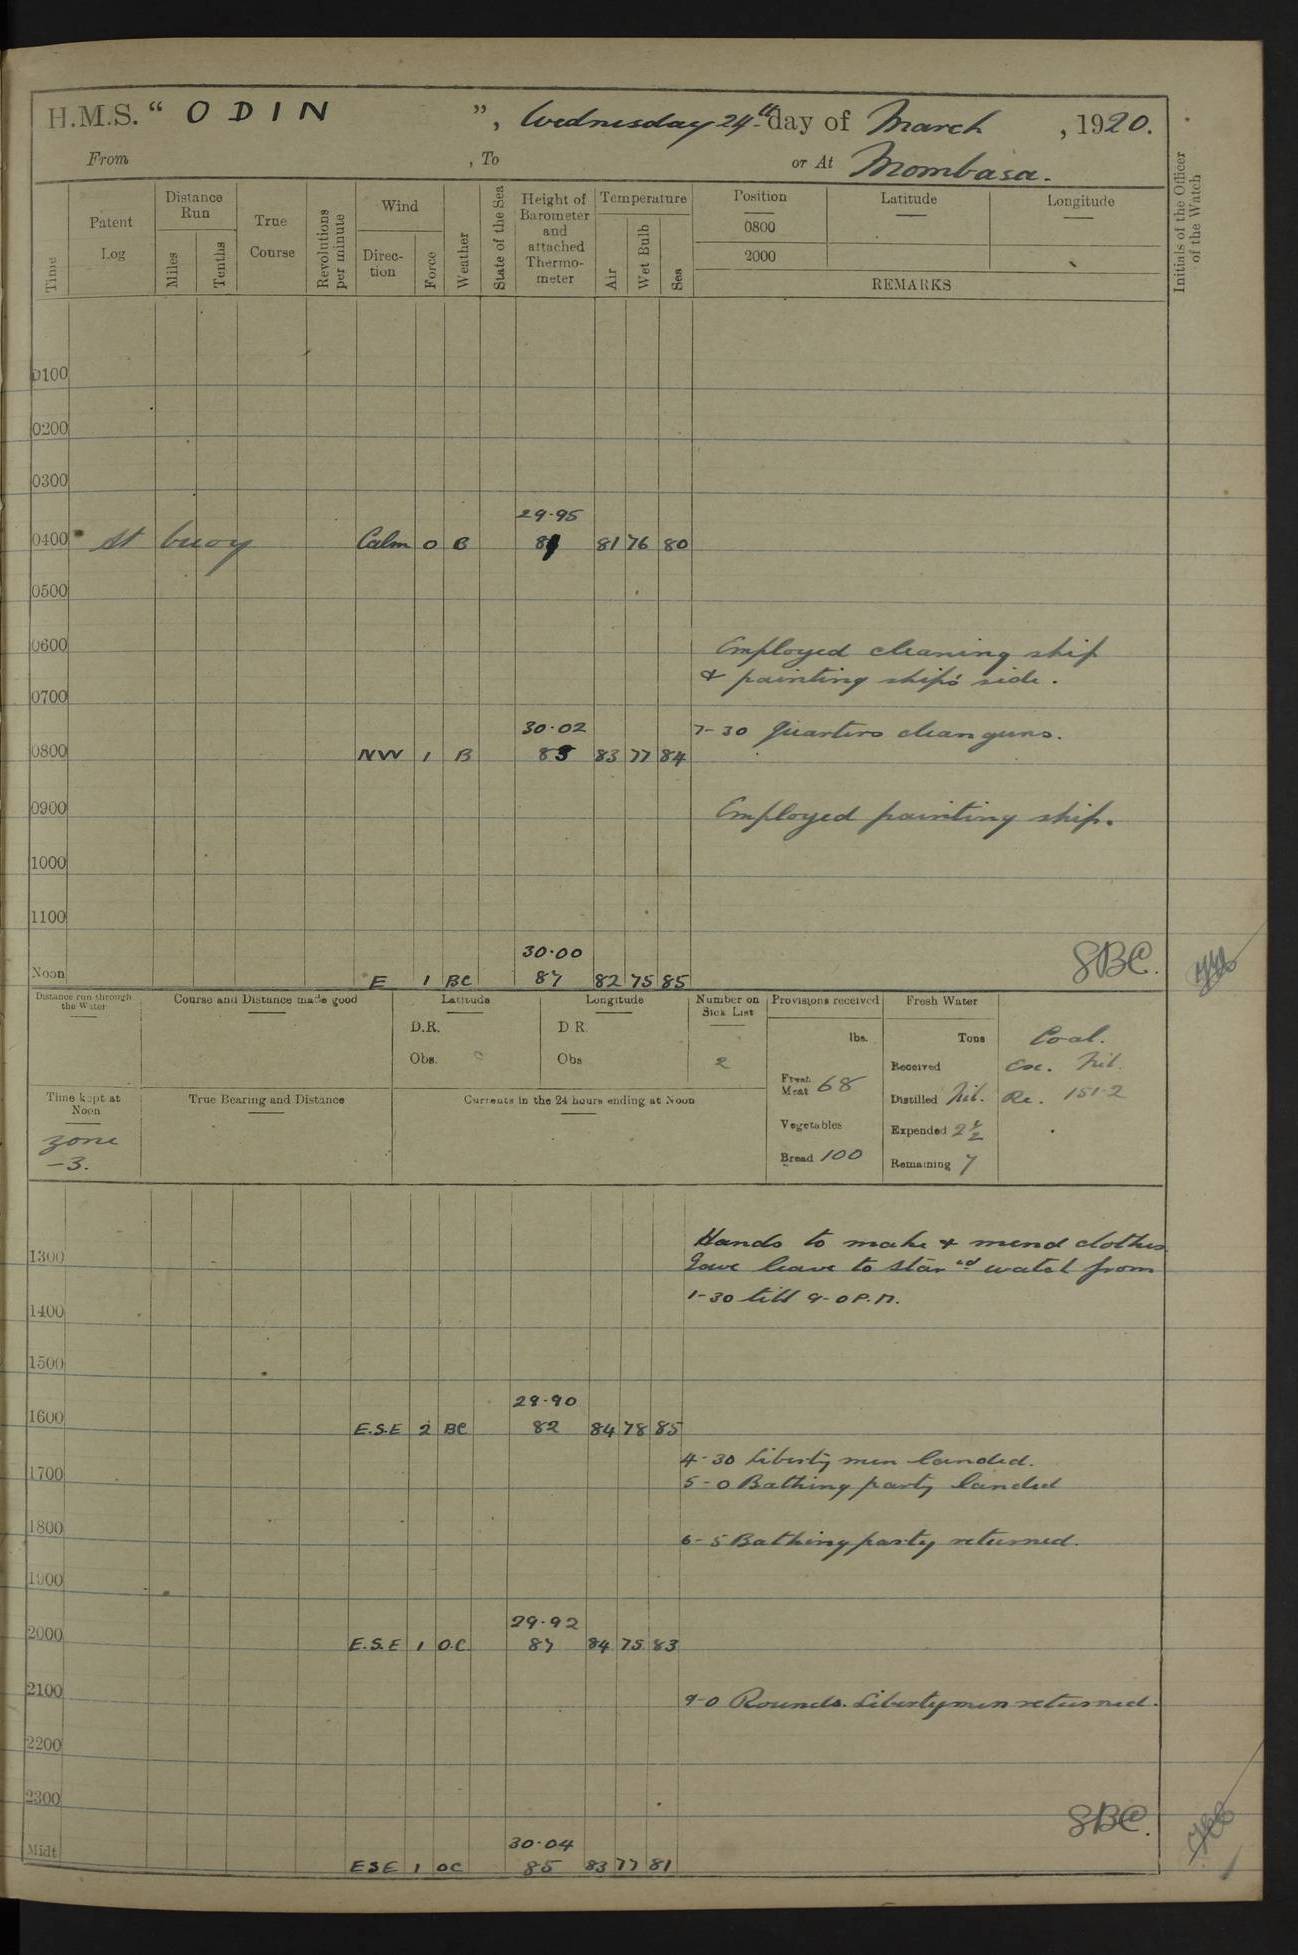 H.M.S. " ODIN ", Wednesday 24th day of March, 1920.
From , To or At Mombasa.
Time Patent Log Distance Run Miles Tenths True Course Revolutions per minute Wind Direction Force Weather State of the Sea Height of Barometer and attached Thermometer Temperature Air Wet Bulb Sea Position Latitude Longitude Initials of the Officer of the Watch
0800
2000
REMARKS
0100
0200
0300
29.95
0400 At buoy Calm 0 B 81 76 80
0500
0600 Employed cleaning ship
& painting ship's side.
0700
30.02 7-30 Quarters clean guns.
0800 NW 1 B 83 77 84
0900 Employed painting ship.
1000
1100
30.00 SBC.
Noon E 1 BC 87 82 75 85
Distance run through the Water Course and Distance made good Latitude Longitude Number on Sick List Provisions received Fresh Water
D.R. D R. lbs. Tons Coal.
Obs. Obs 2 Received Exe. Nil.
Fresh Meat 68 Distilled Nil. Re. 151.2
Time kept at Noon True Bearing and Distance Currents in the 24 hours ending at Noon
Vegetables Expended 2½
zone
-3. Bread 100 Remaining 7
Hands to make & mend clothes
1300 Gave leave to starbd watch from
1-30 till 9-0 P.M.
1400
1500
29.90
1600 E.S.E 2 BC 82 84 78 85
4-30 Liberty men landed.
1700 5-0 Bathing party landed
1800 6-5 Bathing party returned.
1900
29.92
2000 E.S.E 1 O.C. 87 84 75 83
2100 9-0 Rounds. Libertymen returned.
2200
2300
SBC.
30.04
Midt ESE 1 OC 85 83 77 81